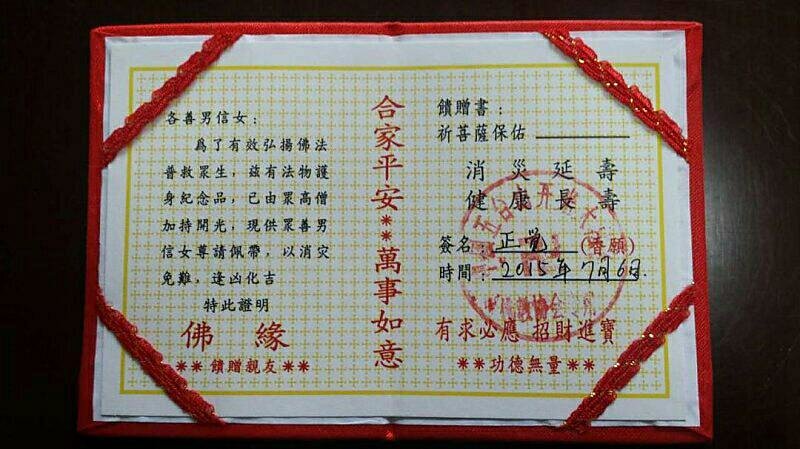 各善男信女：
爲了有效弘揚佛法
普救眾生，兹有法物護
身紀念品，已由眾高僧
加持開光，現供眾善男
信女尊請佩帶，以消灾
免難，逢凶化吉
特此證明
佛緣
**饋贈親友**
合家平安**萬事如意
饋贈書：
祈菩薩保佑
消災延壽
健康長壽
簽名：正觉（香願）
時間：2015年7月6日.
有求必應 招財進寶
**功德無量**